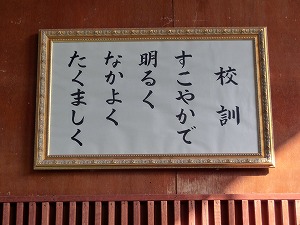 校訓
すこやかで
明るく
なかよく
たくましく